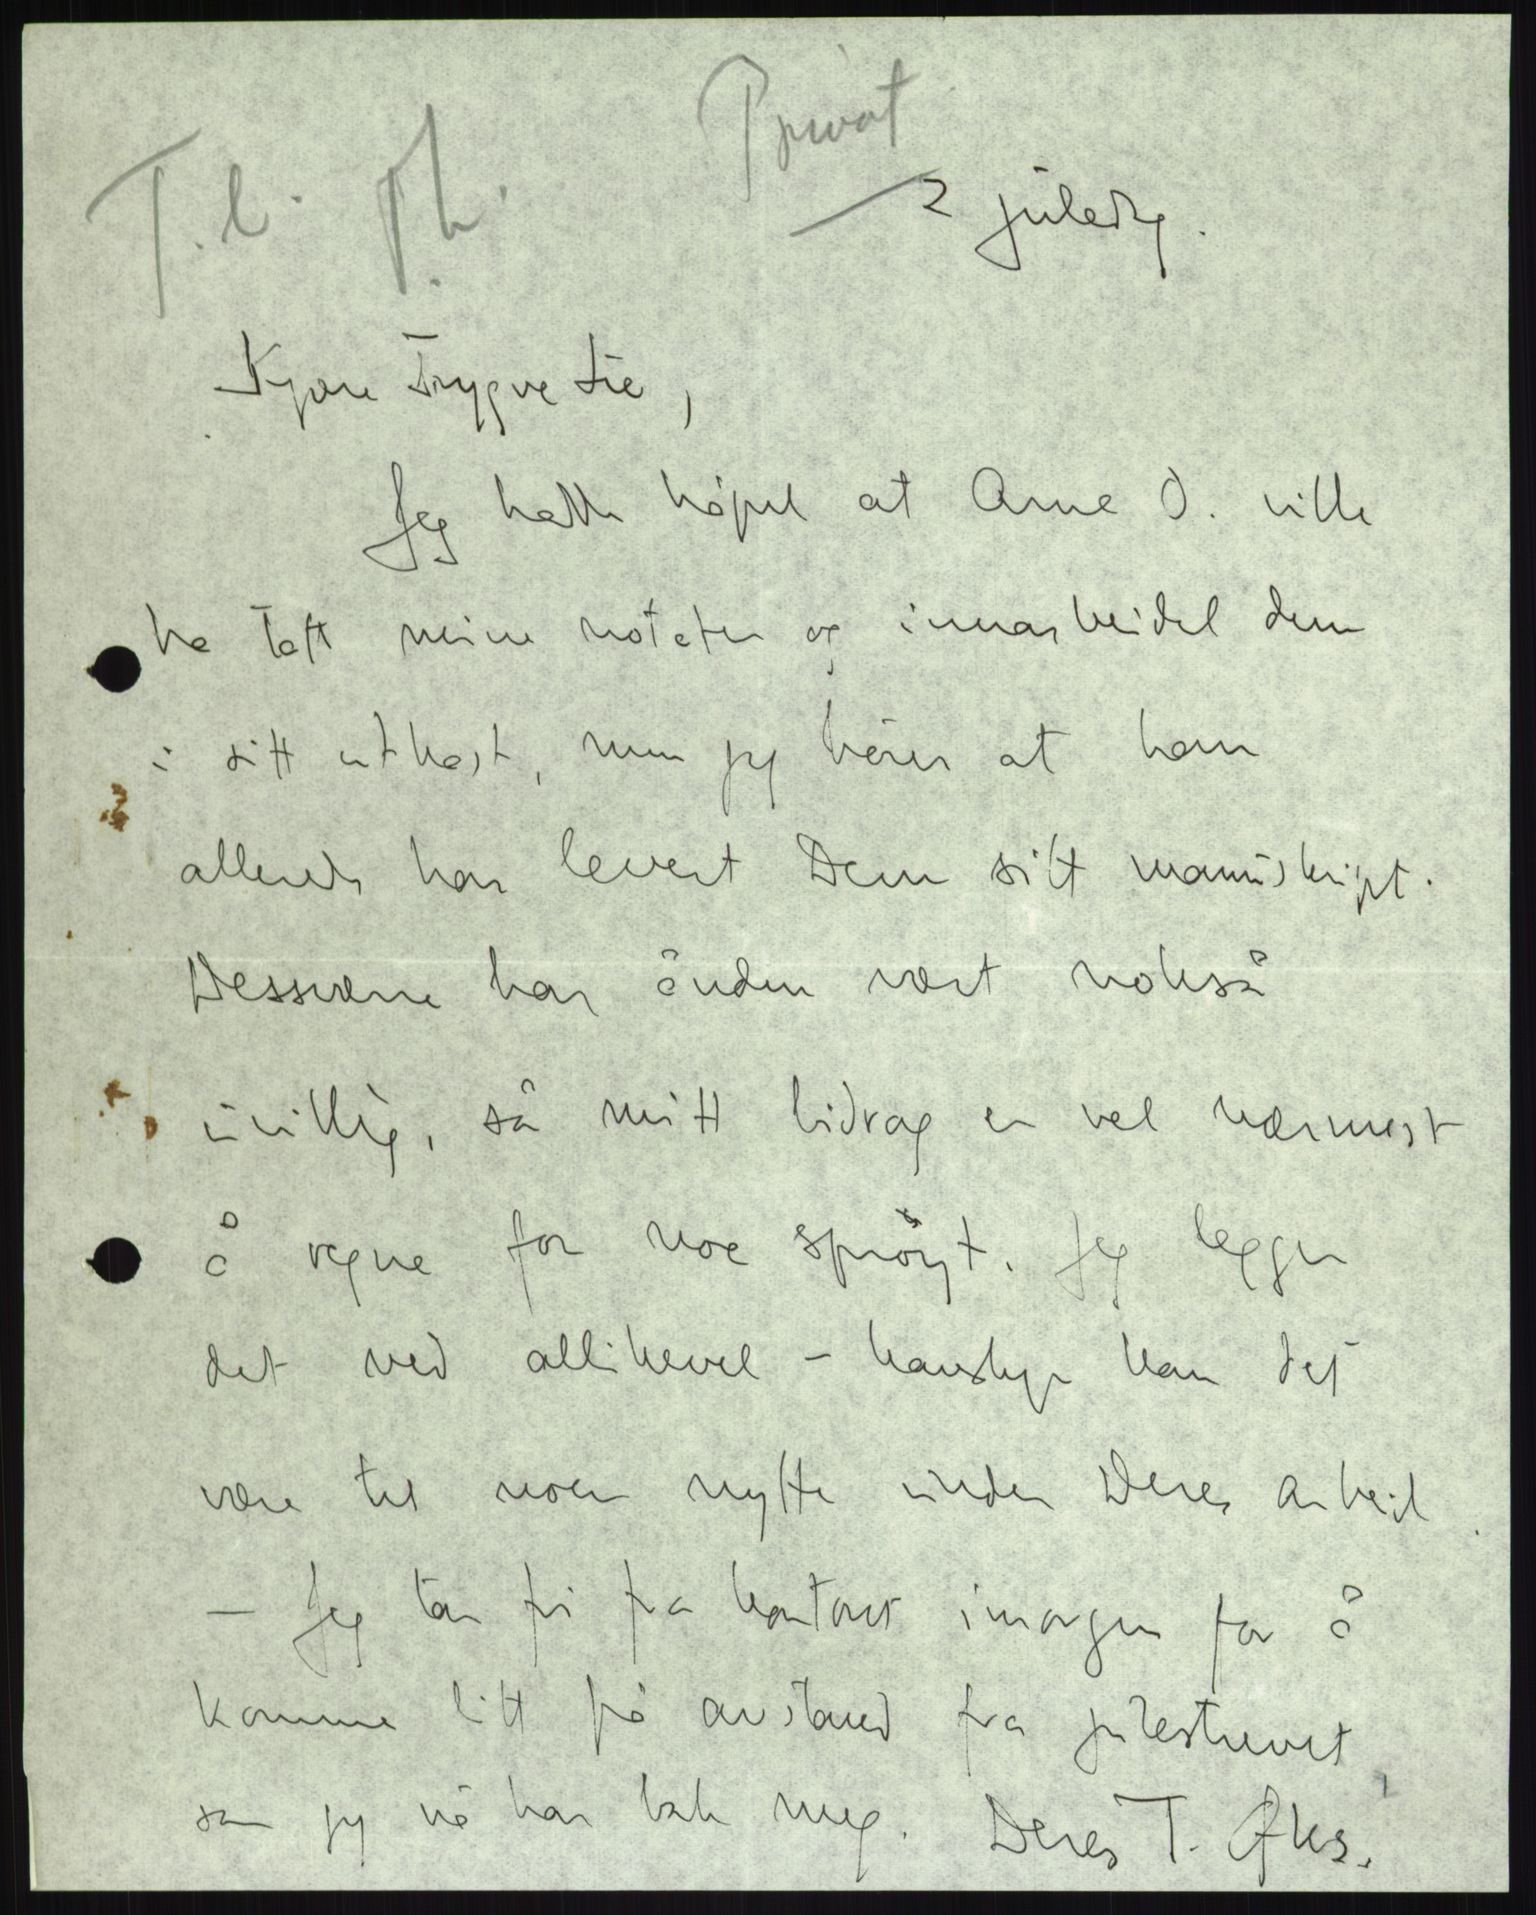 Privat
2 juledag.
Kjære Trygve Lie,
Jeg hadde håpet at Arne O. ville
ha tatt mine notater og innarbeidet dem
i sitt utkast, men jeg hører at han
allerede har levert Dem sitt manuskript.
Dessverre har ånden vært nokså
uvillig, så mitt bidrag er vel nærmest
å regne for noe sprøyt. Jeg legger
det ved allikevel – kanskje kan det
være til noen nytte under Deres arbeid.
– Jeg tar fri fra kontoret imorgen for å
komme litt på avstand fra julestrevet,
som jeg nå har bak meg. Deres T.